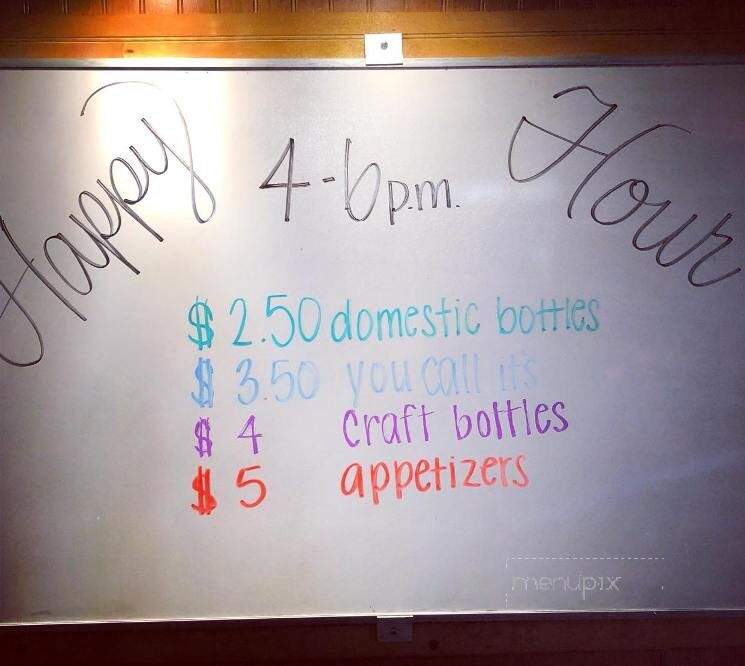 Happy 4-6p.m. Hour
$ 2.50 domestic bottles
$ 3.50 you call it's
$ 4 craft bottles
$ 5 appetizers
menupix